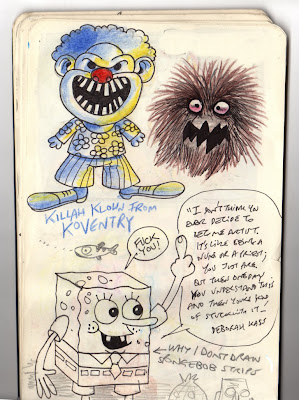 KILLAH KLOWN FROM
KOVENTRY
FUCK
YOU!
"I DON'T THINK YOU
EVER DECIDE TO
BECOME ARTIST.
IT'S LIKE BEING A
NUN OR A PRIEST;
YOU JUST ARE.
BUT THEN ONE DAY
YOU UNDERSTAND THIS
AND THEN YOU'RE KIND
OF STUCK WITH IT —
DEBORAH KASS
WHY I DON'T DRAW
SPONGEBOB STRIPS